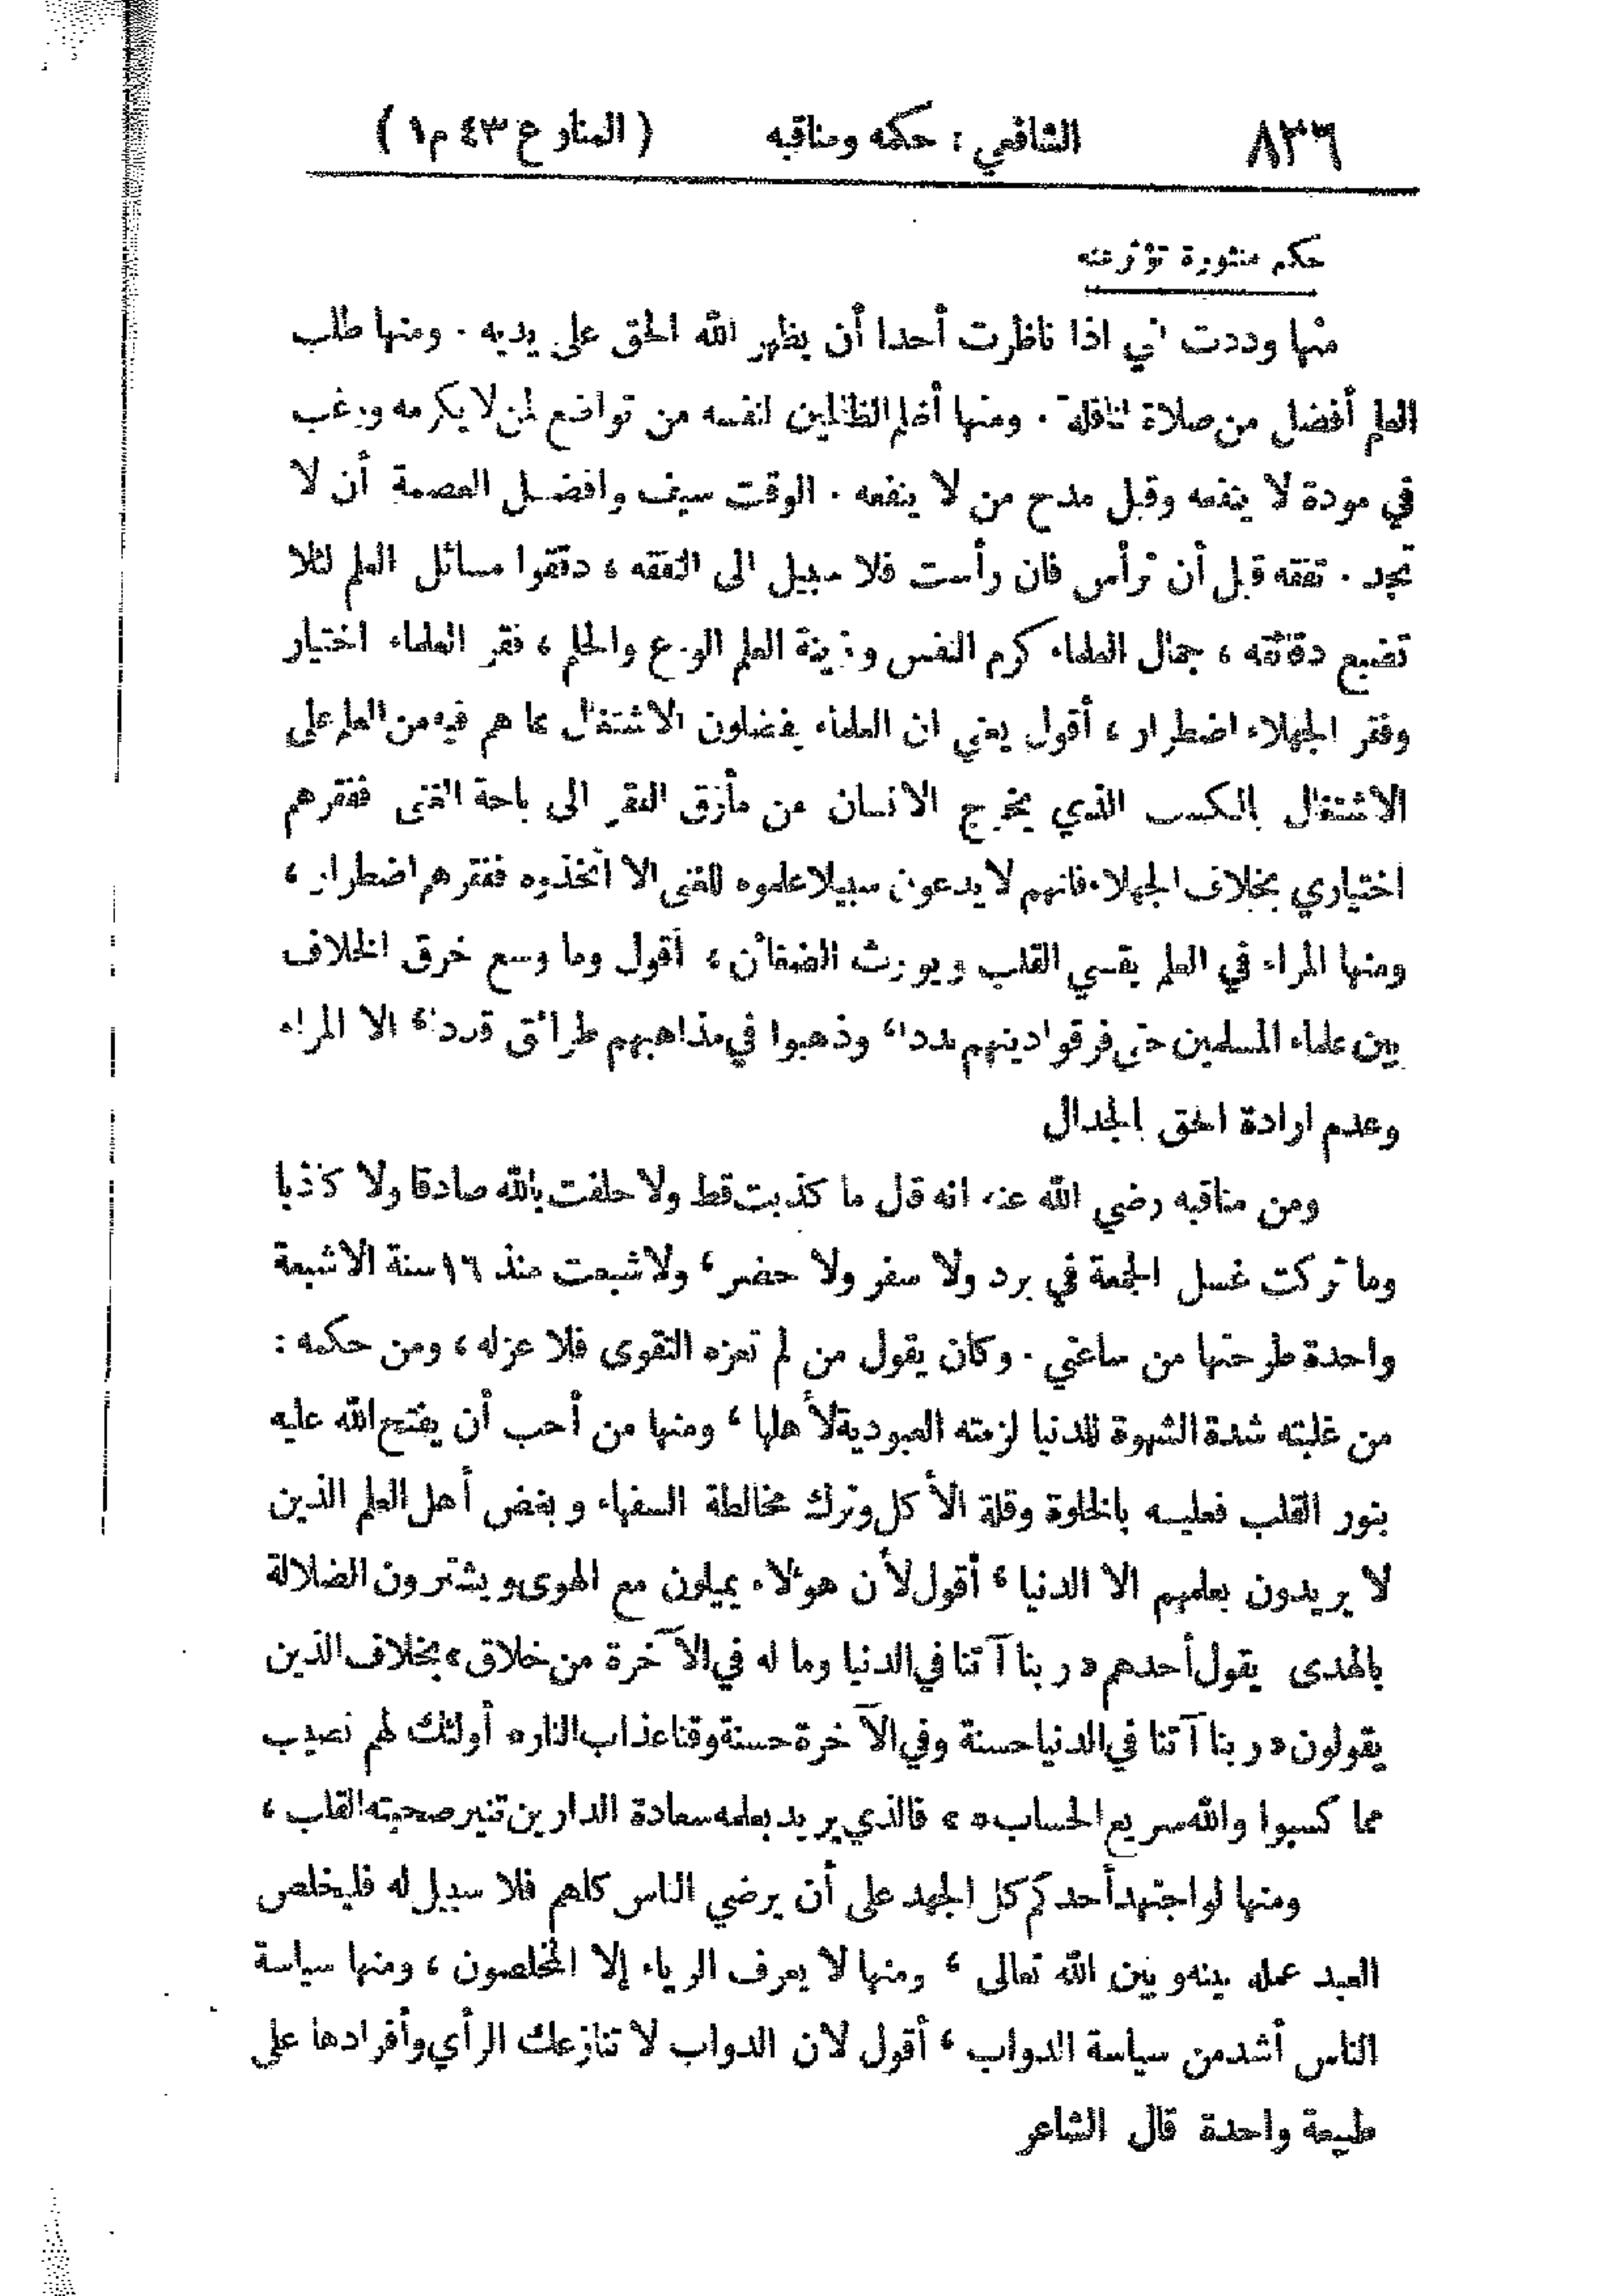 ٨٣٦ الشافعي : حكمه ومناقبه ( المنار ع ٤٣ م١ )
حكم منثورة تؤثر عنه
منها وددت اني اذا ناظرت أحدا أن يظهر الله الحق على يديه . ومنها طلب
العلم أفضل من صلاة النافلة . ومنها أظلم الظالمين لنفسه من تواضع لمن لا يكرمه ورغب
في مودة لا ينفعه وقبل مدح من لا ينفعه . الوقت سيف وافضل العصمة أن لا
تجد . تفقه قبل أن ترأس فان رأست فلا سبيل الى التفقه ، دققوا مسائل العلم لئلا
تضيع دقائقه ، جمال العلماء كرم النفس وزينة العلم الورع والحلم ، فقر العلماء اختيار
وفقر الجهلاء اضطرار ، أقول يعني ان العلماء يفضلون الاشتغال بما هم فيه من العلم على
الاشتغال بالكسب الذي يخرج الانسان من مأزق الفقر الى باحة الغنى ففقرهم
اختياري بخلاف الجهلاء فانهم لا يدعون سبيلا علموه للغنى الا اتخذوه ففقرهم اضطرار ،
ومنها المراء في العلم يقسي القلب ويورث الضغائن ، أقول وما وسع خرق الخلاف
بين علماء المسلمين حتى فرقوا دينهم بددا ، وذهبوا في مذاهبهم طرائق قددا ، الا المراء
وعدم ارادة الحق بالجدال
ومن مناقبه رضي الله عنه انه قال ما كذبت قط ولا حلفت بالله صادقا ولا كاذبا
وما تركت غسل الجمعة في برد ولا سفر ولا حضر ، ولا شبعت منذ ١٦ سنة الا شبعة
واحدة طرحتها من ساعتي . وكان يقول من لم تعزه التقوى فلا عز له ، ومن حكمه :
من غلبته شدة الشهوة للدنيا لزمته العبودية لأهلها ، ومنها من أحب أن يفتح الله عليه
بنور القلب فعليه بالخلوة وقلة الأكل وترك مخالطة السفهاء وبغض أهل العلم الذين
لا يريدون بعلمهم الا الدنيا ، أقول لأن هؤلاء يميلون مع الهوى ويشترون الضلالة
بالهدى يقول أحدهم « ربنا آتنا في الدنيا وما له في الآخرة من خلاق » بخلاف الذين
يقولون « ربنا آتنا في الدنيا حسنة وفي الآخرة حسنة وقنا عذاب النار ه أولئك لهم نصيب
مما كسبوا والله سريع الحساب ه » فالذي يريد بعلمه سعادة الدارين تنير صحبته القلب ،
ومنها لو اجتهد أحدكم كل الجهد على أن يرضي الناس كلهم فلا سبيل له فليخلص
العبد عمله بينه وبين الله تعالى ، ومنها لا يعرف الرياء إلا المخلصون ، ومنها سياسة
الناس أشد من سياسة الدواب ، أقول لان الدواب لا تنازعك الرأي وأفرادها على
طبيعة واحدة قال الشاعر